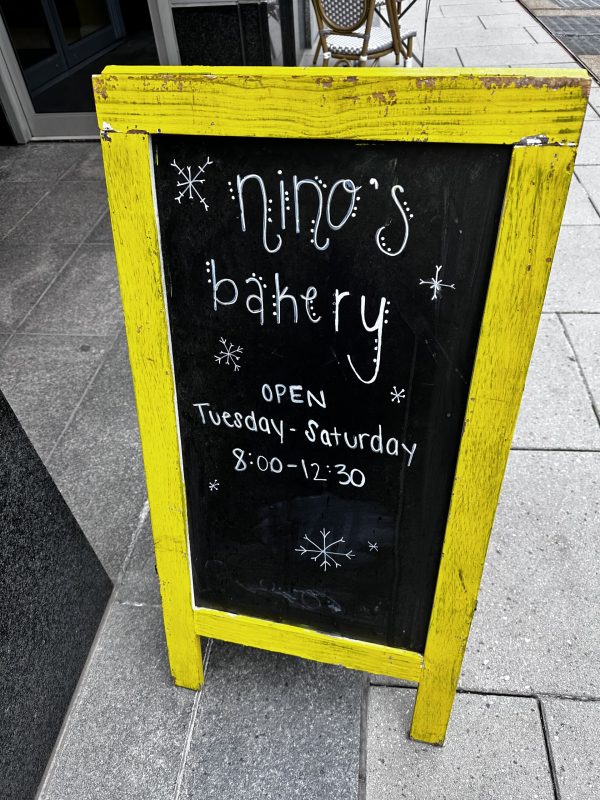 nino's
bakery
OPEN
Tuesday - Saturday
8:00-12:30